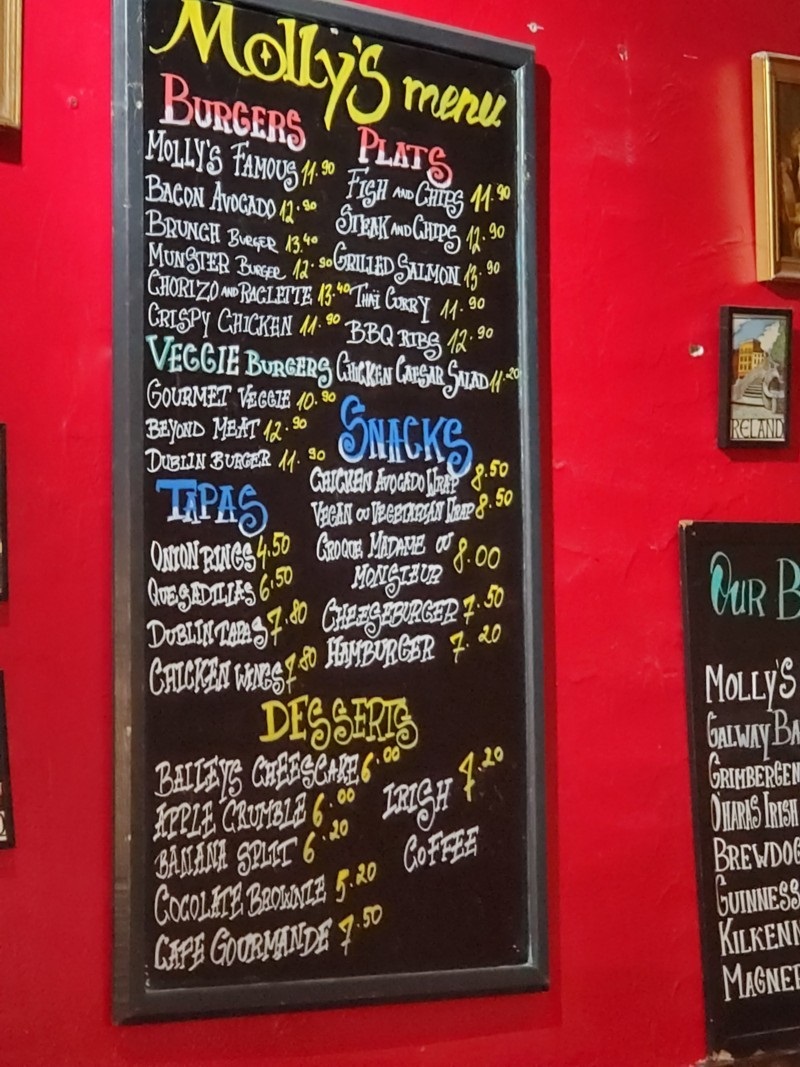 Molly's menu
BURGERS
MOLLY'S FAMOUS 11.90
BACON AVOCADO 12.90
BRUNCH BURGER 13.40
MUNSTER BURGER 12.90
CHORIZO AND RACLETTE 13.40
CRISPY CHICKEN 11.90
VEGGIE BURGERS
GOURMET VEGGIE 10.90
BEYOND MEAT 12.90
DUBLIN BURGER 11.90
TAPAS
ONION RINGS 4.50
QUESADILLAS 6.50
DUBLIN TAPAS 7.80
CHICKEN WINGS 7.80
PLATS
FISH AND CHIPS 11.90
STEAK AND CHIPS 12.90
GRILLED SALMON 13.90
THAÏ CURRY 11.90
BBQ RIBS 12.90
CHICKEN CAESAR SALAD 11.20
SNACKS
CHICKEN AVOCADO WRAP 8.50
VEGAN OU VEGETARIAN WRAP 8.50
CROQUE MADAME OU 8.00
MONSIEUR
CHEESEBURGER 7.50
HAMBURGER 7.20
DESSERTS
BAILEYS CHEESCAKE 6.00
APPLE CRUMBLE 6.00
BANANA SPLIT 6.20
COCOLATE BROWNIE 5.20
CAFE GOURMANDE 7.50
IRISH 7.20
COFFEE
IRELAND
OUR B
MOLLY'S
GALWAY BA
GRIMBERGEN
O'HARAS IRISH
BREWDOG
GUINNESS
KILKENN
MAGNER